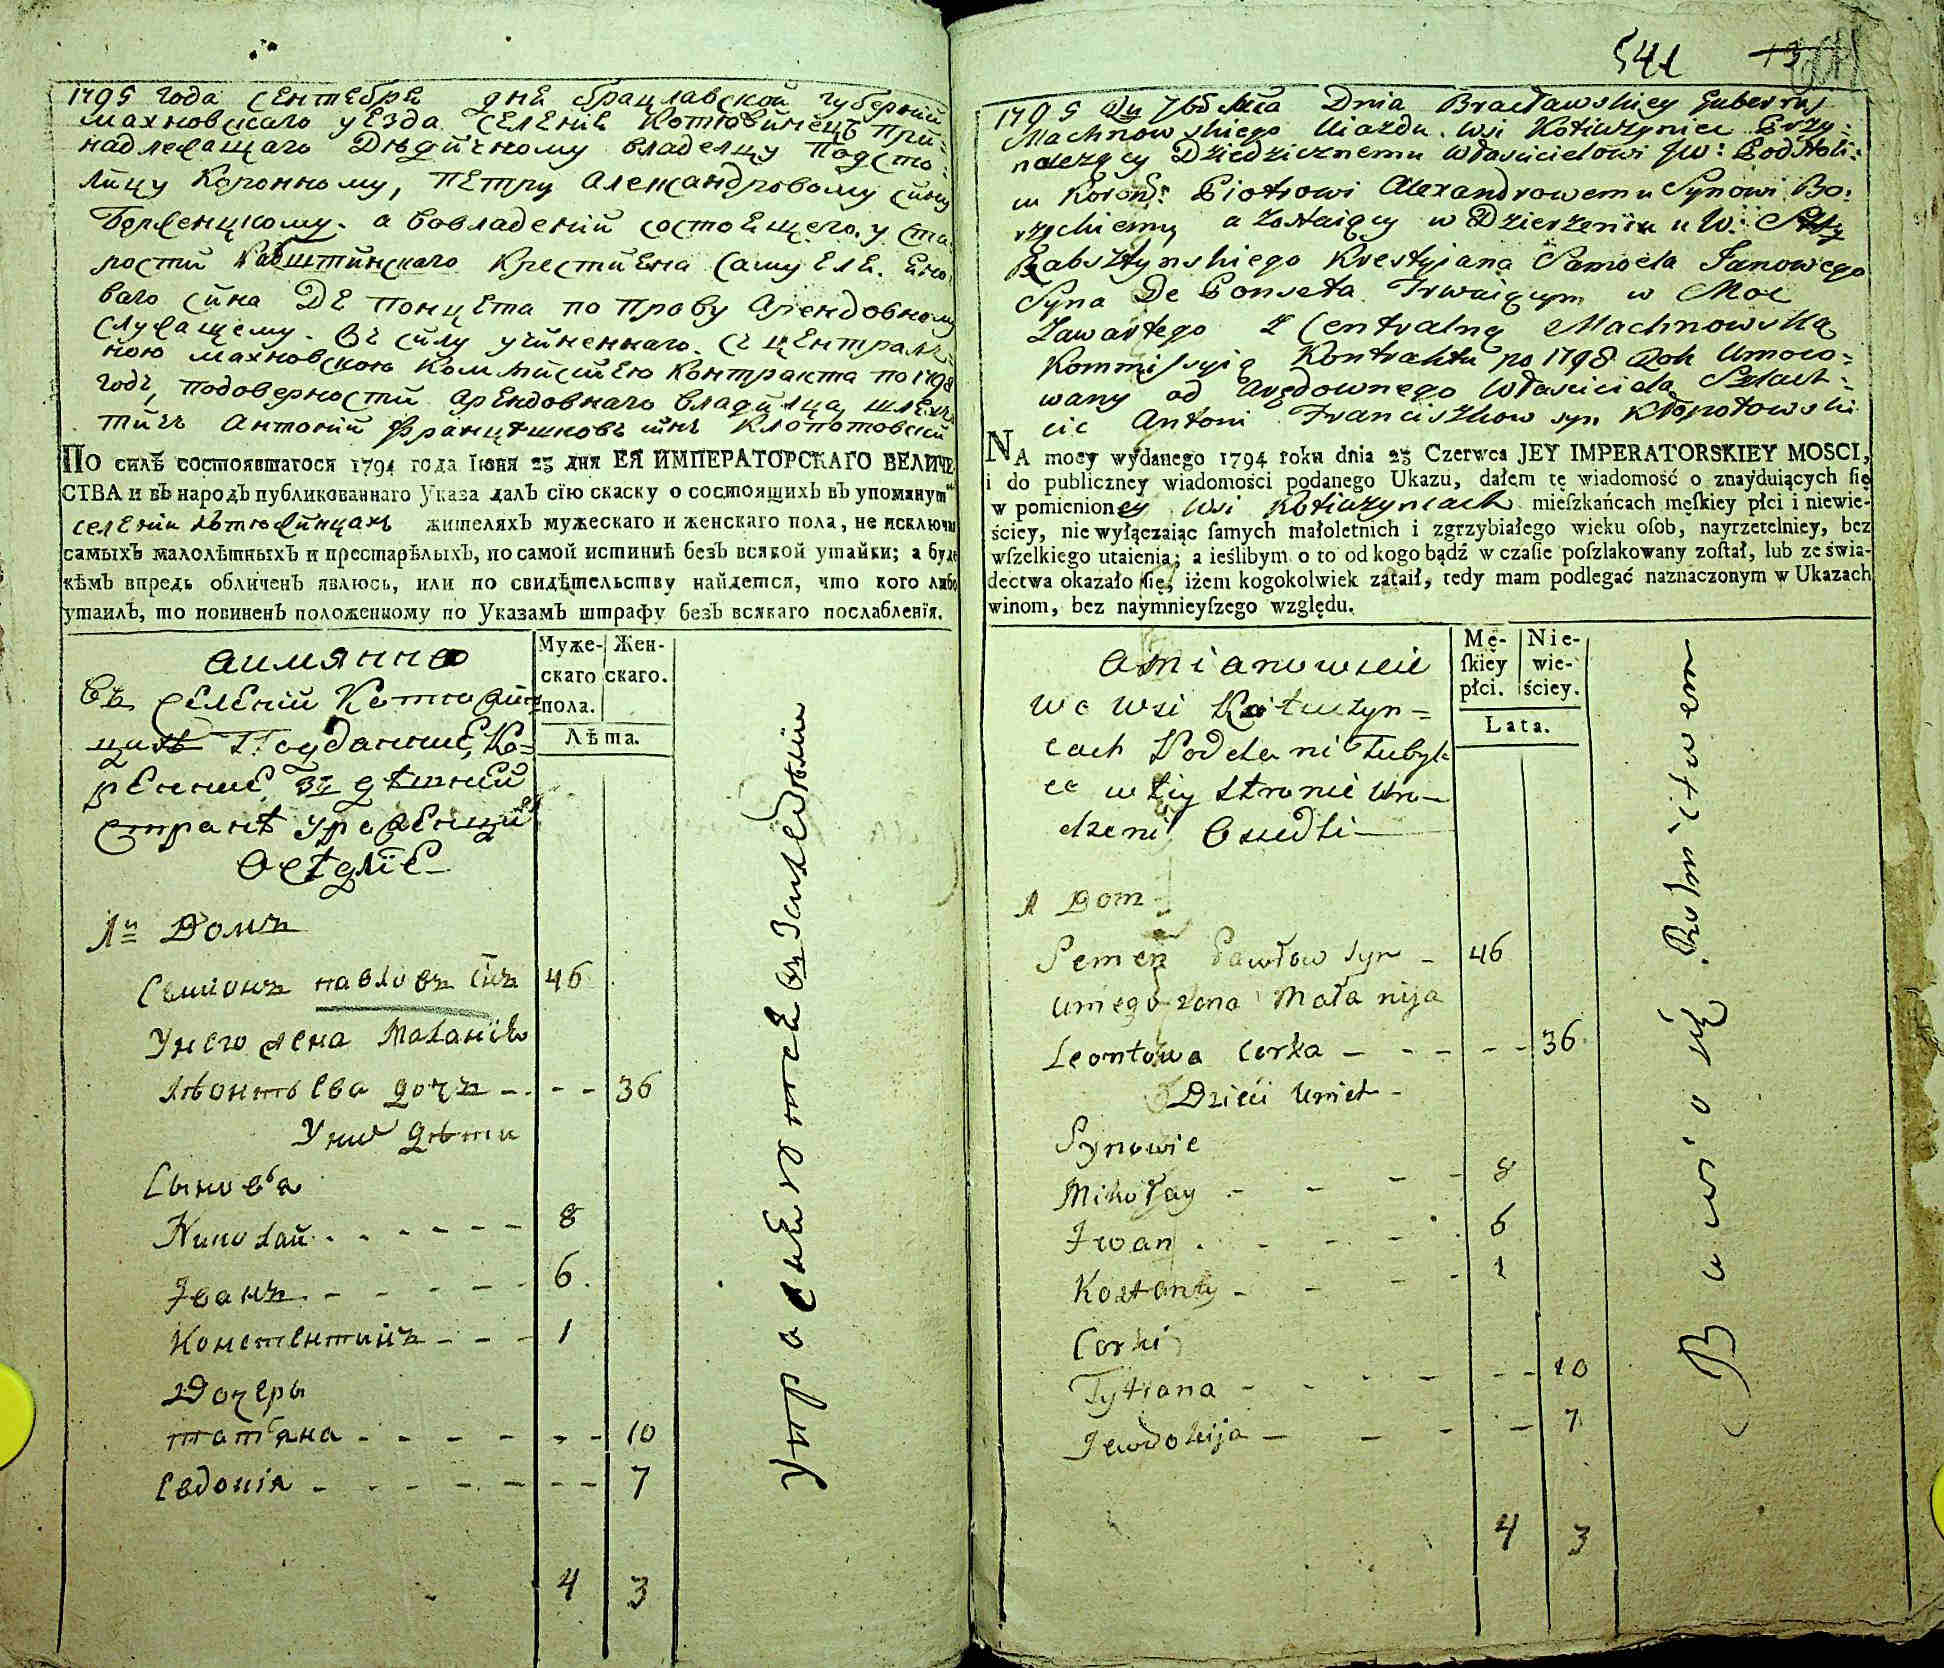 1795 года сентебря дня брацлавской губерний
махновскаго уезда селение Котювинецъ при-
надлежащаго Дедичному владелцу Подсто-
лйцу Коронному, петру александровому сйну
Борженцкому. а вовладений состоещего. у ста-
ростй Рабштйнскаго Крестйена Самуеле. Ено-
ваго сйна Де понцета по праву арендовному
служащему. въ силу учйненнаго. съ централ-
ною махновскою Коммисйею контракта по 1798
годъ, подоверностй арендовнаго владйлца шлех-
тйчъ антоний Францишковъ сйнъ Клопотовский
По силѣ состоявшагося 1794 года Іюня 23 дня ЕЯ ИМПЕРАТОРСКАГО ВЕЛИЧЕ-
СТВА и въ народъ публикованнаго Указа далъ сїю скаску о состоящихъ въ упомянут
селении жителяхъ мужескаго и женскаго пола, не исключи
самыхъ малолѣтныхъ и престарѣлыхъ, по самой истиннѣ безъ всякой утайки; а буде
кѣмъ впредь обличенъ явлюсь, или по свидѣтельству найдется, что кого либо
утаилъ, то повиненъ положенному по Указамъ штрафу безъ всякаго послабленїя.
Муже- Жен-
скаго скаго.
пола.
Лѣта.
аимянно
въ селений
Подданние, Ко-
ренние въ здешней
странѣ урожденци
осѣдлїе
1й Домъ
Семионъ павловъ снъ 46
Унего жена Маланiя
Лѣонтьева дочъ - - - 36
Уних дѣти
Сыновья
Николай - - - - 8
Iванъ - - - - 6
Констентинъ - - - 1
Дочеры
татяна - - - - - - 10
Евдокiя - - - - - - 7
4 3
541
1795 Dnia Bracławskiey Gubernij
Machnowskiego Uiazdu. Wsi Kotiużyniec Przy-
należący Dziedzicznemu Właścicielowi JW: Podstoli:
u Koron: Piotrowi Alexandrowemu Synowi Bo:
rzęckiemu a Zostaiący w Dzierżeniu u W:
Rabsztynskiego Krestyjana Samoela Janowego
Syna De Ponseta Trwaiącym w Moc
Zawartego z Centralną Machnowską
Kommissyią Kontraktu po 1798 Rok Umoco=
wany od Arędownego Właściciela Szlach-
cic Antoni Franciszkow syn Kłopotowski
NA mocy wydanego 1794 roku dnia 23 Czerwca JEY IMPERATORSKIEY MOSCI,
i do publiczney wiadomości podanego Ukazu, dałem tę wiadomość o znayduiących się
w pomienioney Wsi Kotiużyncach mieſzkańcach męſkiey płci i niewie-
ściey, nie wyłączaiąc ſamych małoletnich i zgrzybiałego wieku oſob, nayrzetelniey, bez
wſzelkiego utaienia; a ieślibym o to od kogo bądź w czaſie poſzlakowany zoſtał, lub ze świa-
dectwa okazało ſię, iżem kogokolwiek zataił, tedy mam podlegać naznaczonym w Ukazach
winom, bez naymnieyſzego względu.
Mę- Nie-
ſkiey wie-
płci. ściey.
Lata.
Amianowicie
we Wsi Kotiużyn=
cach Poddani Tubyl
ce w tey stronie Uro-
dzeni Osiedli
1 Dom
Semen Pawłow syn - 46
Uniego żona Małanija
Leontowa Corka - - - - 36
Dzieci Unich -
Synowie
Mikołay - - - - 8
Iwan - - - - 6
Kostanty - - - 1
Corki
Tytiana - - - - - - 10
Jewdokija - - - - 7
4 3